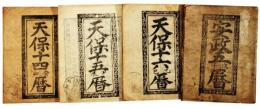 天保十四暦
天保十五暦
天保十六暦
安政五暦